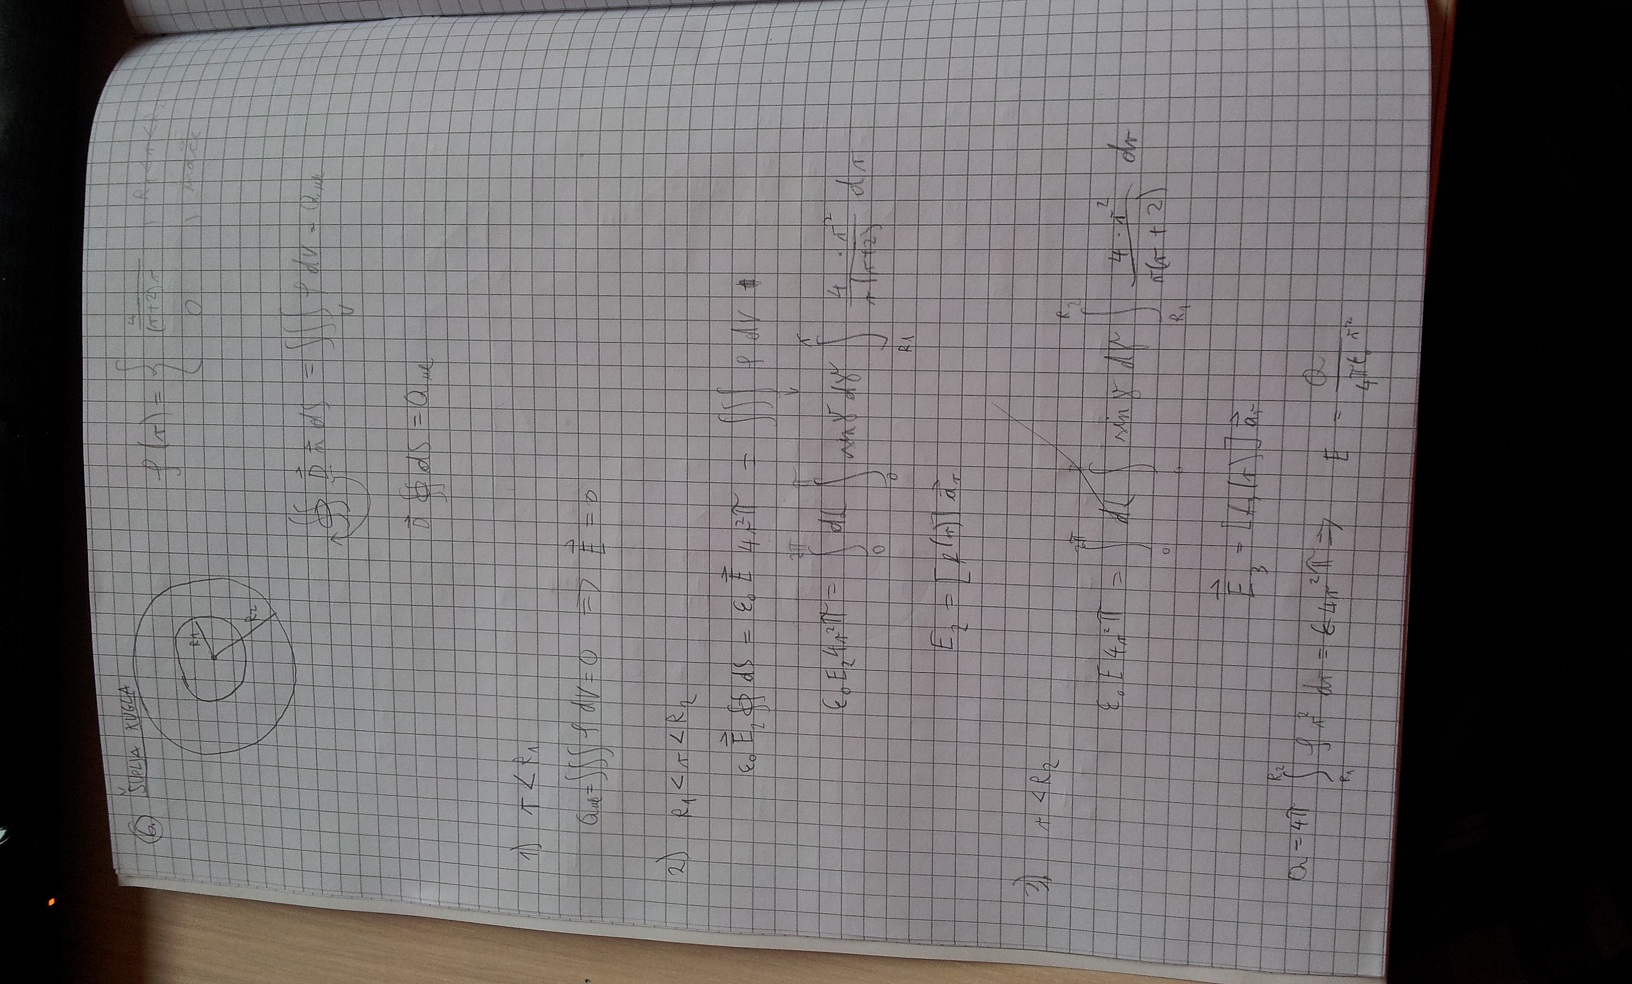 6. ŠUPLJA KUGLA
R1
R2
ρ(r) = { 4/((r+2)r) , R1<r<R2
0 , inače
∯ D⃗ n⃗ dS = ∭_V ρ dV = Quk
D⃗ ∯ dS = Quk
1) r < R1
Quk = ∭ ρ dV = 0 => E⃗ = 0
2) R1 < r < R2
ε0 E⃗2 ∯ dS = ε0 E⃗ 4r²π = ∭_V ρ dV
ε0 E2 4r²π = ∫_0^2π dL ∫_0^π sinϑ dϑ ∫_R1^r 4·r²/(r(r+2)) dr
E2 = [f(r)] a⃗r
3) r < R2
ε0 E 4r²π = ∫_0^2π dL ∫_0 sinϑ dϑ ∫_R1^R2 4·r²/(r(r+2)) dr
E⃗3 = [f1(r)] a⃗r
Q = 4π ∫_R1^R2 ρ r² dr = ε 4r²π => E = Q/(4πε0 r²)